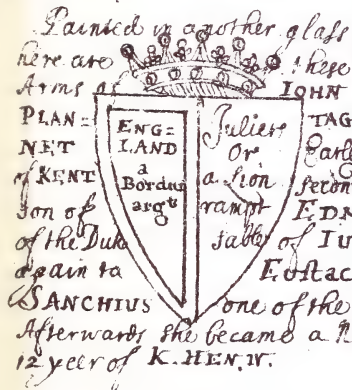 Painted in another glass
here are these
Arms of IOHN
PLAN= TAG
NET Earl
of KENT second
son of EDM
of the Duke of Iu
again to Eustac
SANCHIUS one of the
Afterwards she became a N
12 yeer of K. HEN. IV.
ENG=
LAND
a
Bordur
argt
Juliers
Or
a lion
rampt
sable